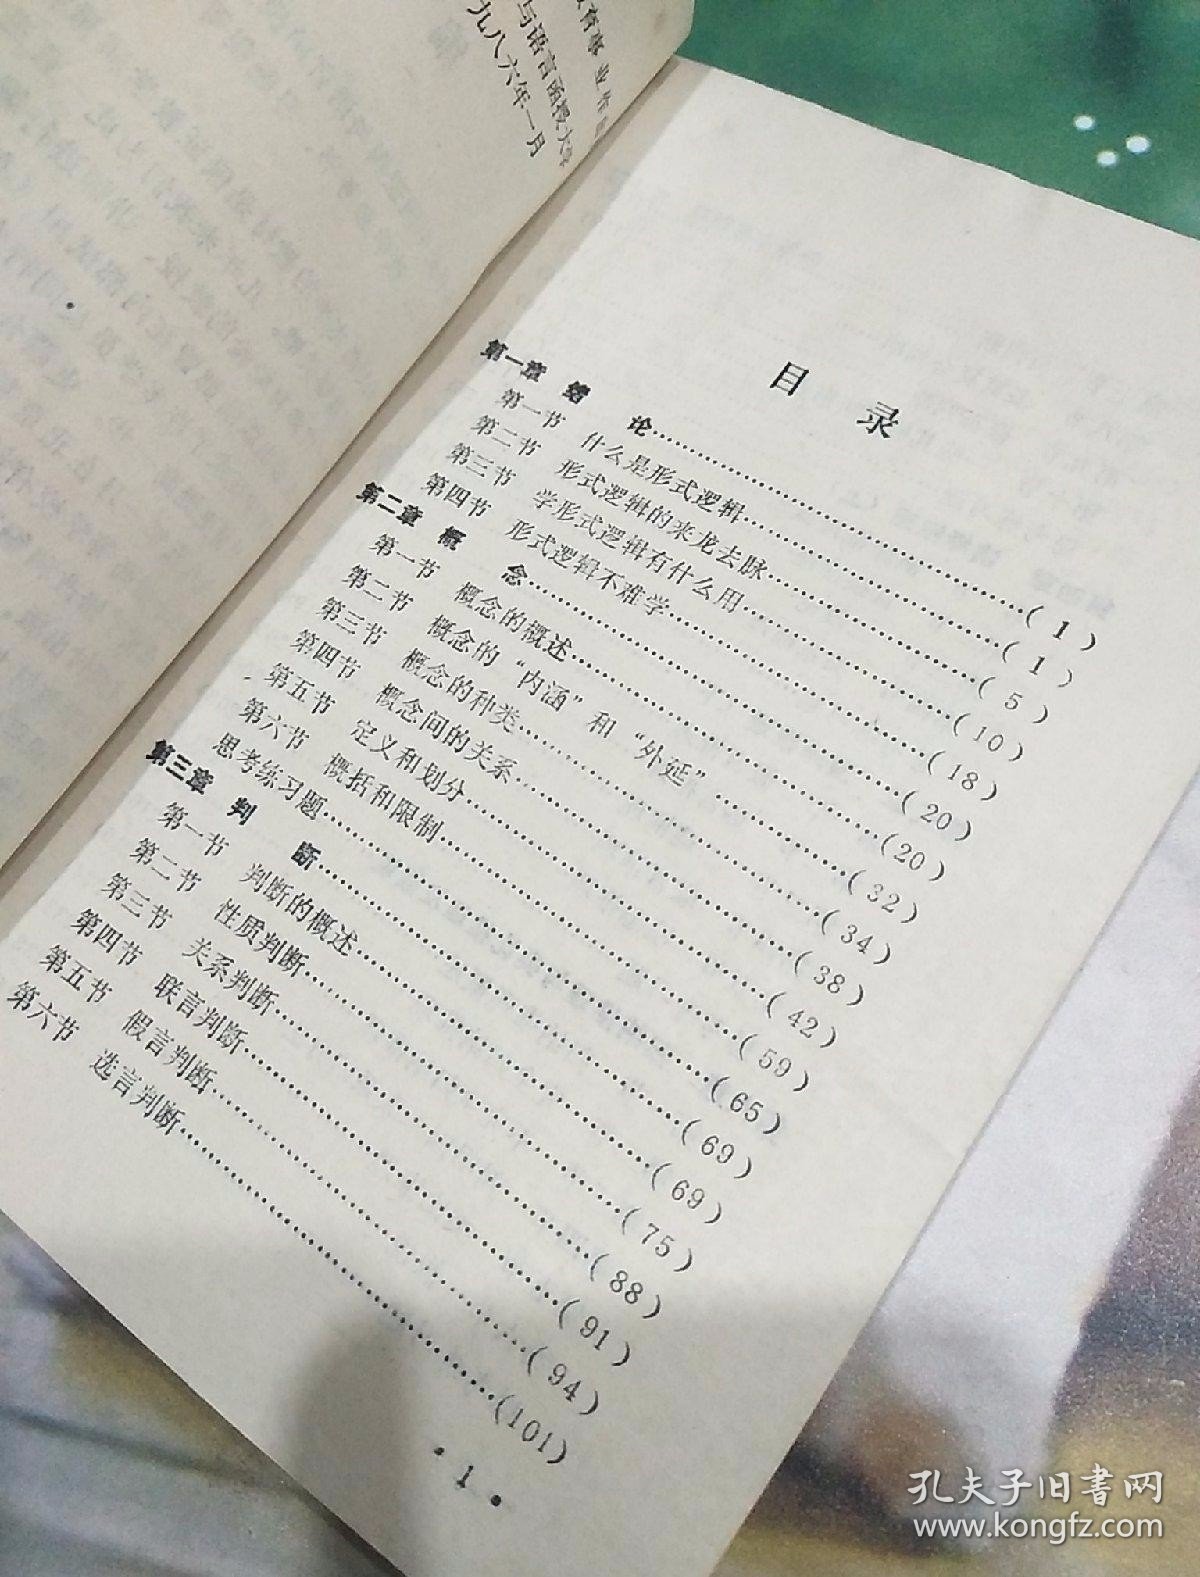 育事业作
与语言函授大学
九八六年一月
目录
第一章 绪论……(1)
第一节 什么是形式逻辑……(1)
第二节 形式逻辑的来龙去脉……(5)
第三节 学形式逻辑有什么用……(10)
第四节 形式逻辑不难学……(18)
第二章 概念……(20)
第一节 概念的概述……(20)
第二节 概念的“内涵”和“外延”……(32)
第三节 概念的种类……(34)
第四节 概念间的关系……(38)
第五节 定义和划分……(42)
第六节 概括和限制……(59)
思考练习题……(65)
第三章 判断……(69)
第一节 判断的概述……(69)
第二节 性质判断……(75)
第三节 关系判断……(88)
第四节 联言判断……(91)
第五节 假言判断……(94)
第六节 选言判断……(101)
• 1 •
孔夫子旧书网
www.kongfz.com